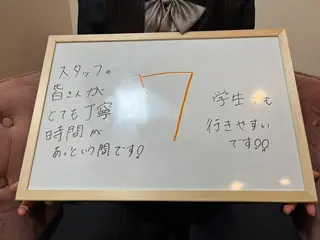 スタッフの
皆さんが
とても丁寧
時間が
あっという間です!
7
学生でも
行きやすい
です!!